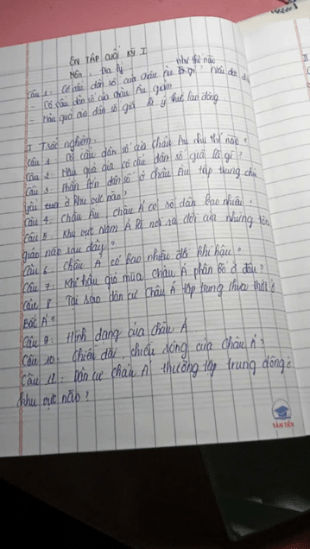 ÔN TẬP CUỐI KỲ I
Môn: Địa lý
như thế nào
Câu 1: Cơ cấu dân số của châu Âu là gì?
Cơ cấu dân số của châu Âu già
- Hậu quả của dân số già là gì thiếu lao động
I Trắc nghiệm.
Câu 1. Cơ cấu dân số của châu Âu như thế nào?
Câu 2. Hậu quả của cơ cấu dân số già là gì?
Câu 3. Phân bố dân số ở châu Âu tập trung chủ
yếu ở khu vực nào?
Câu 4. Châu Âu, châu Á có số dân bao nhiêu?
Câu 5. Khu vực Nam Á là nơi ra đời của những tôn
giáo nào sau đây?
Câu 6. Châu Á có bao nhiêu đới khí hậu?
Câu 7. Khí hậu gió mùa châu Á phân bố ở đâu?
Câu 8. Tại sao dân cư châu Á tập trung thưa thớt ở
Bắc Á?
Câu 9. Hình dạng của châu Á
Câu 10. Chiều dài, chiều rộng của châu Á?
Câu 11. Dân cư châu Á thường tập trung đông ở
khu vực nào?
TÂN TIẾN